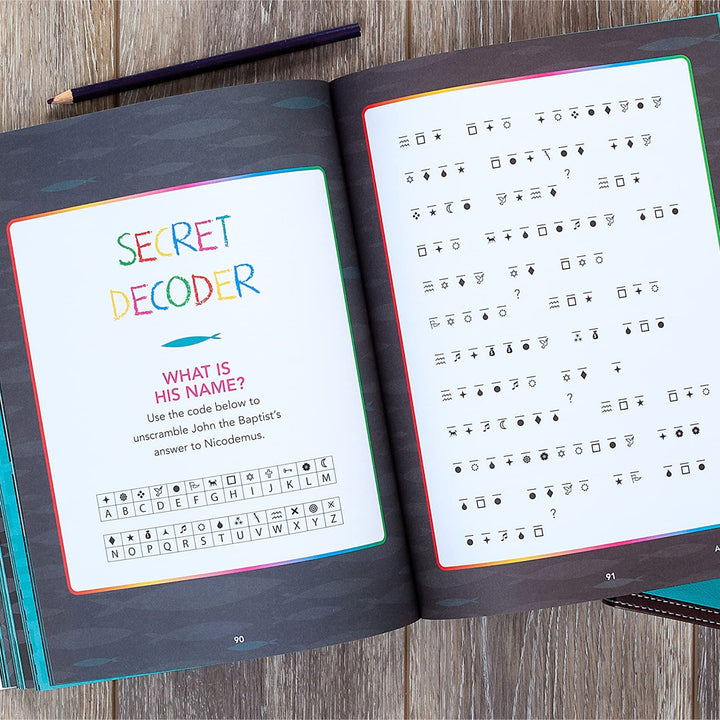 SECRET
DECODER
WHAT IS
HIS NAME?
Use the code below to
unscramble John the Baptist's
answer to Nicodemus.
A B C D E F G H I J K L M
N O P Q R S T U V W X Y Z
90
?
?
?
?
?
91
A